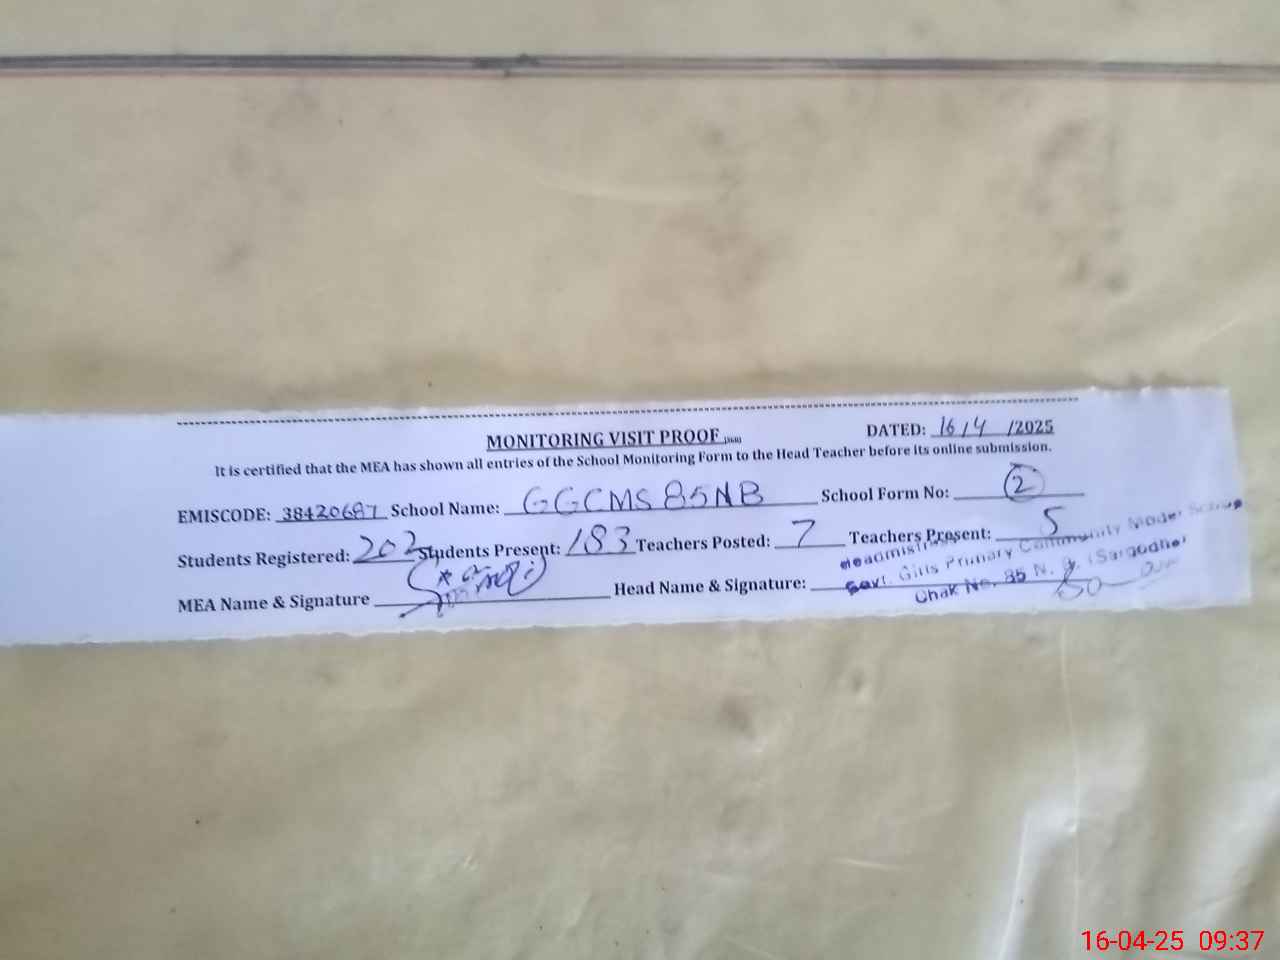 MONITORING VISIT PROOF
DATED: 16/4/2025
It is certified that the MEA has shown all entries of the School Monitoring Form to the Head Teacher before its online submission.
EMISCODE: 38420687 School Name: GGCMS 85NB School Form No: 2
Students Registered: 202 Students Present: 183 Teachers Posted: 7 Teachers Present: 5
MEA Name & Signature Head Name & Signature:
Headmistress
Govt. Girls Primary Community Model School
Chak No. 85 N. B. (Sargodha)
16-04-25 09:37